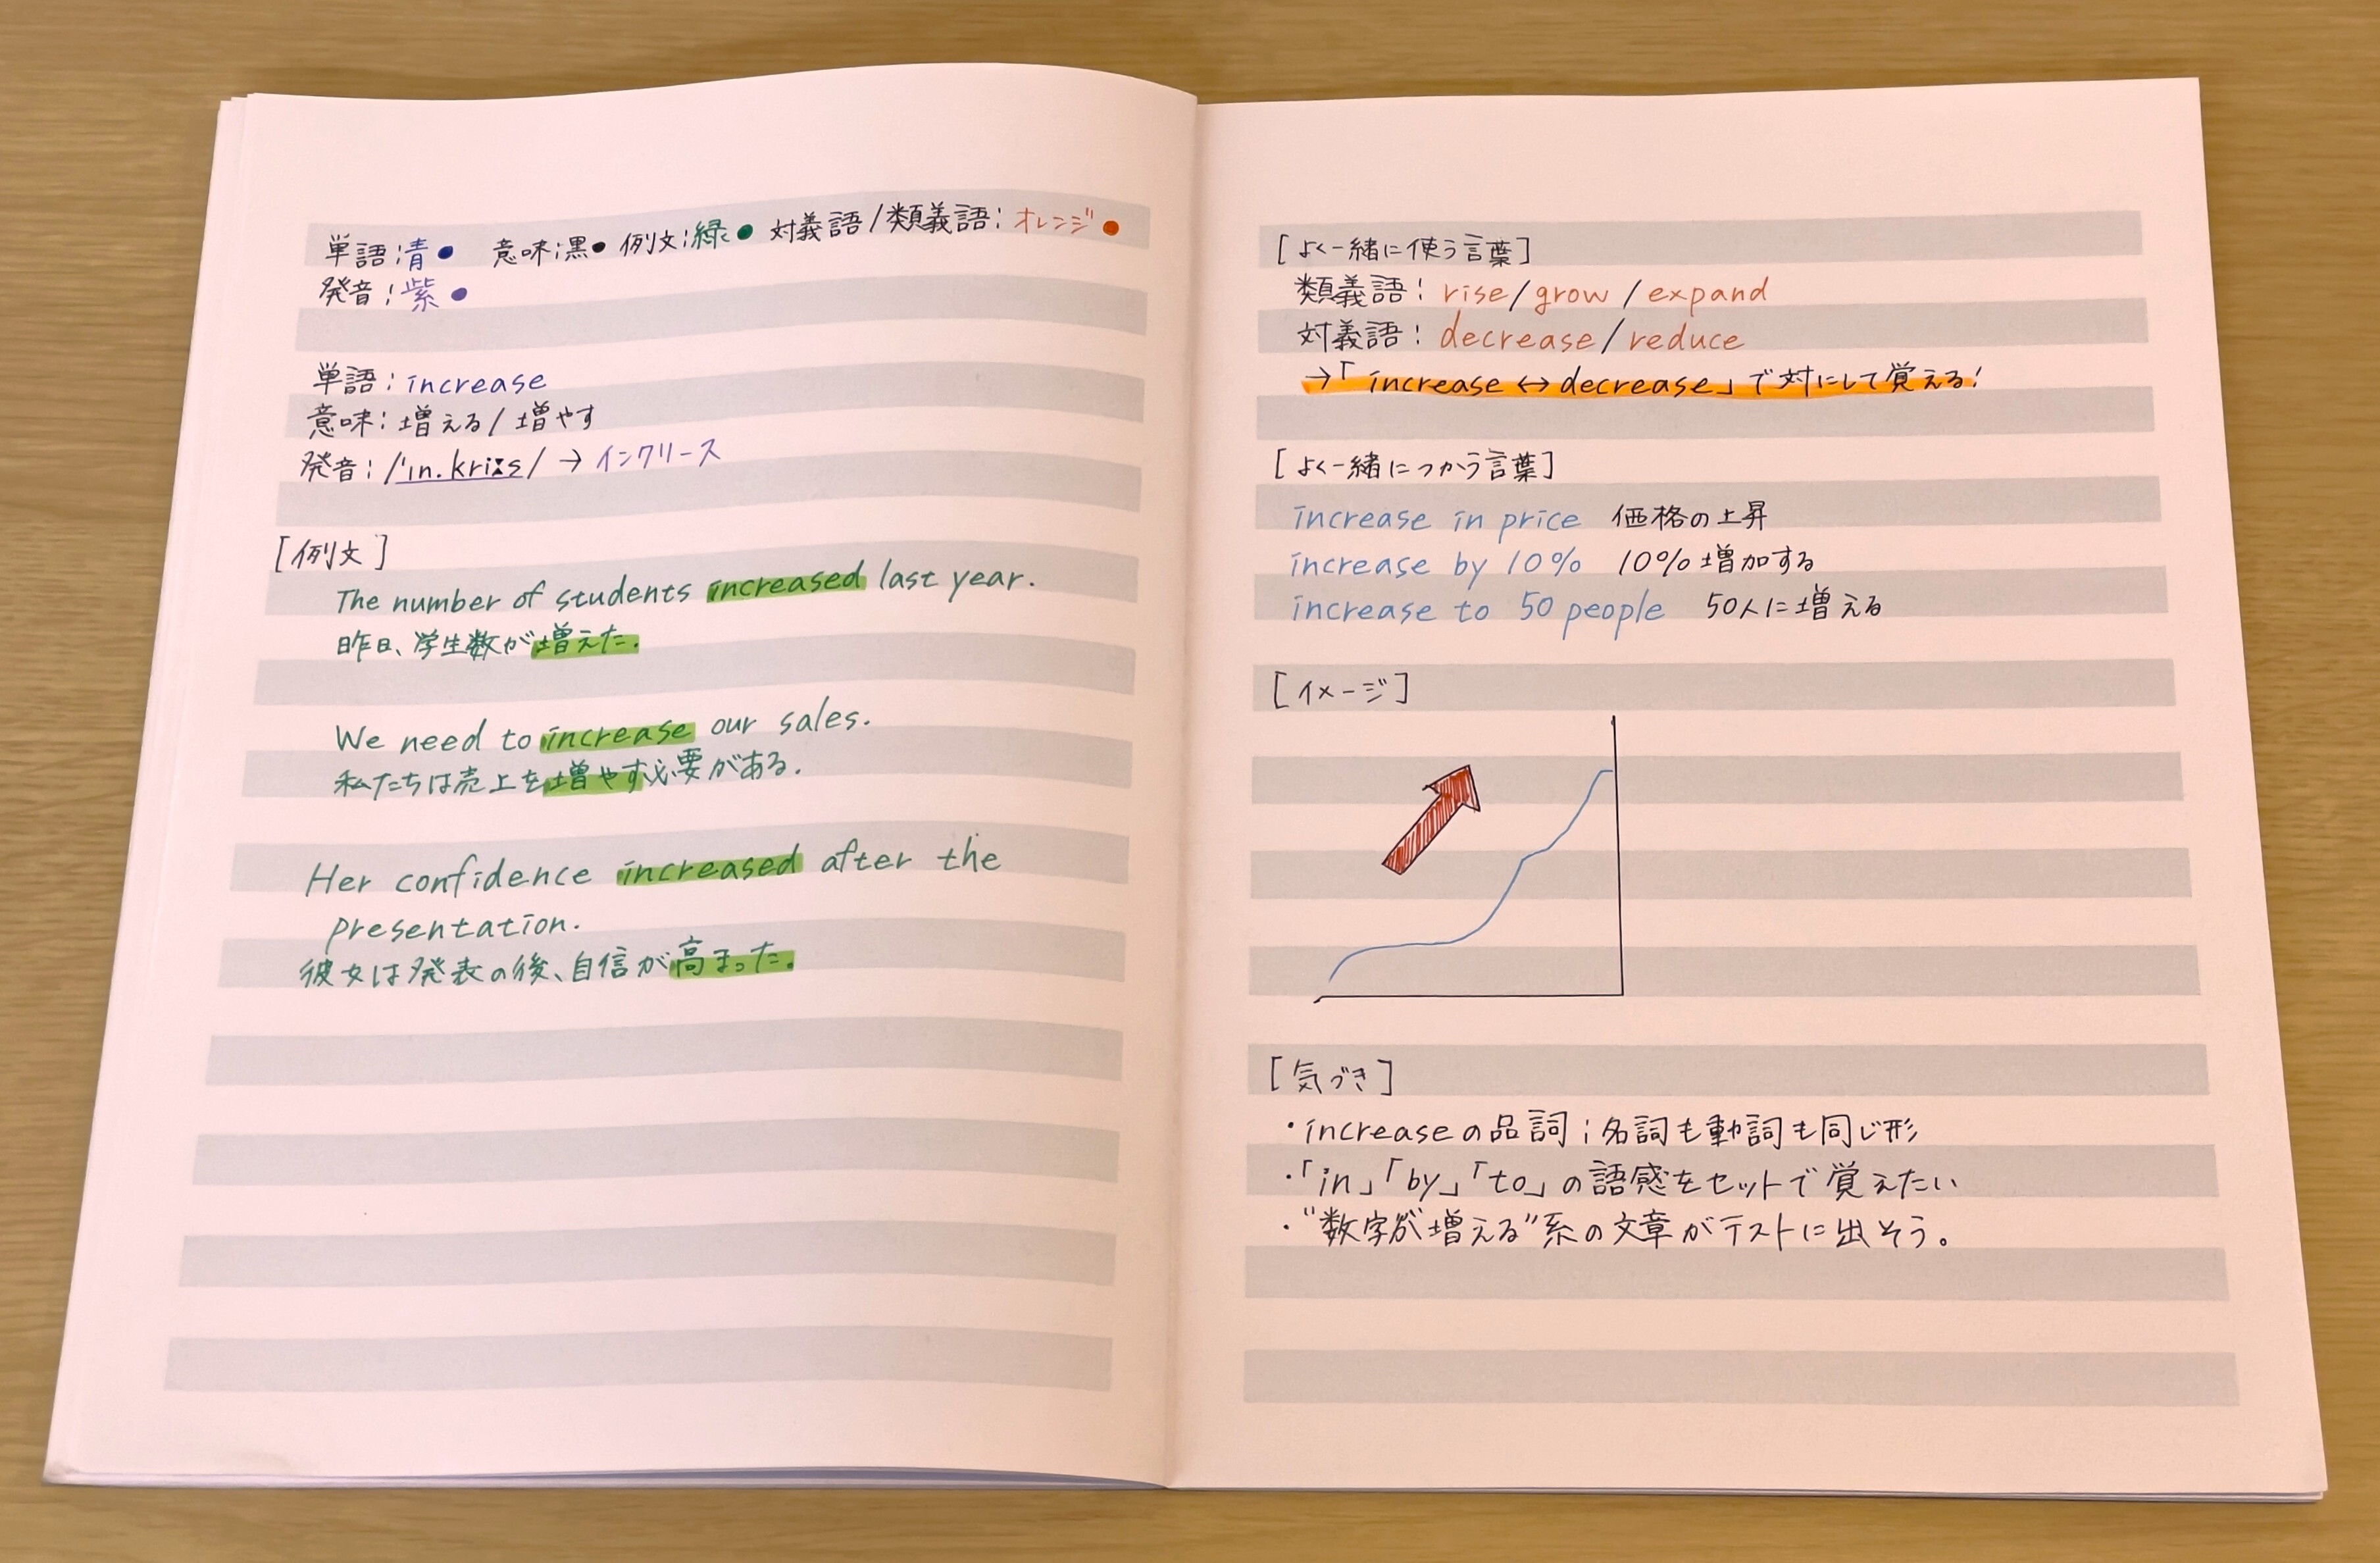 単語:青● 意味:黒● 例文:緑● 対義語/類義語:オレンジ●
発音:紫●
単語:increase
意味:増える/増やす
発音:/ˈɪn.kriːs/→インクリース
[例文]
The number of students increased last year.
昨日、学生数が増えた.
We need to increase our sales.
私たちは売上を増やす必要がある.
Her confidence increased after the
presentation.
彼女は発表の後、自信が高まった.
[よく一緒に使う言葉]
類義語:rise/grow/expand
対義語:decrease/reduce
→「increase↔decrease」で対にして覚える!
[よく一緒につかう言葉]
increase in price 価格の上昇
increase by 10% 10%増加する
increase to 50 people 50人に増える
[イメージ]
[気づき]
・increaseの品詞;名詞も動詞も同じ形
・「in」「by」「to」の語感をセットで覚えたい
・"数字が増える"系の文章がテストに出そう。